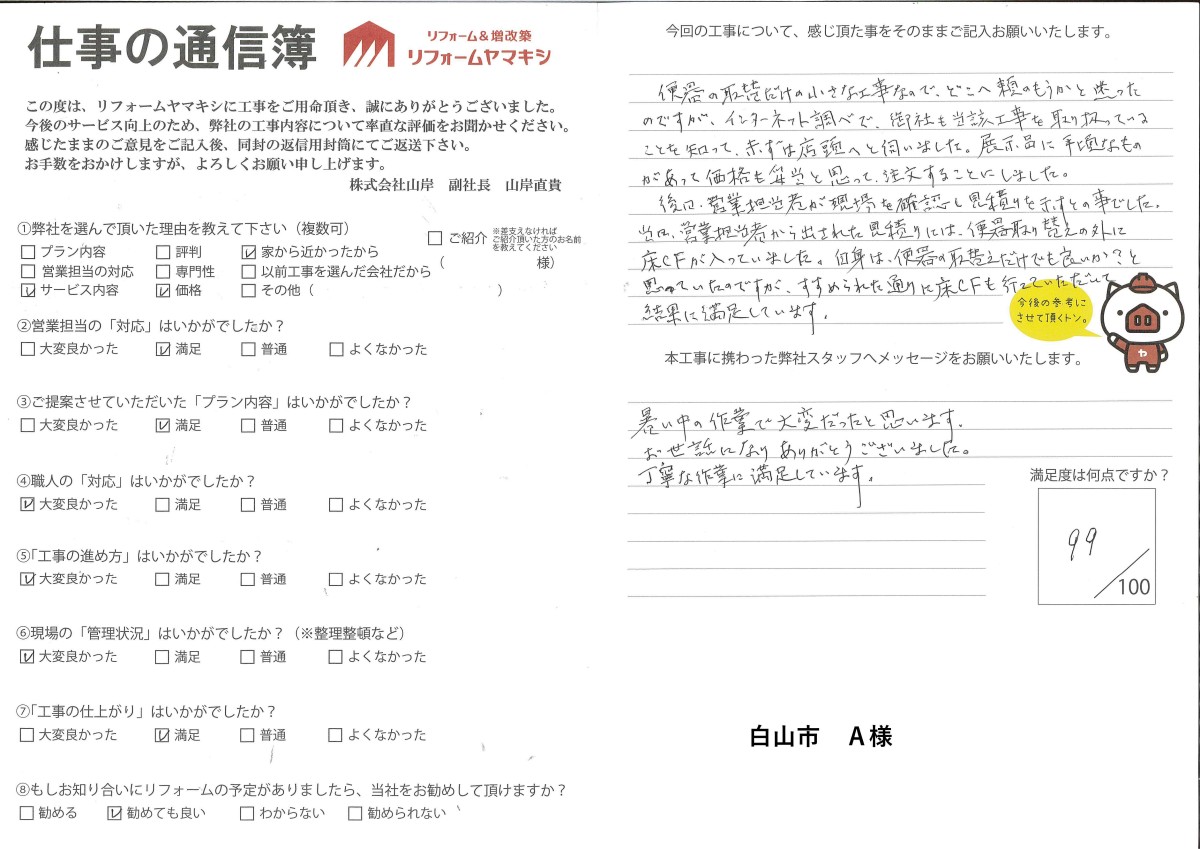 仕事の通信簿
リフォーム＆増改築
リフォームヤマキシ
この度は、リフォームヤマキシに工事をご用命頂き、誠にありがとうございました。
今後のサービス向上のため、弊社の工事内容について率直な評価をお聞かせください。
感じたままのご意見をご記入後、同封の返信用封筒にてご返送下さい。
お手数をおかけしますが、よろしくお願い申し上げます。
株式会社山岸　副社長　山岸直貴
①弊社を選んで頂いた理由を教えて下さい（複数可）
□ プラン内容　□ 評判　☑ 家から近かったから
□ 営業担当の対応　□ 専門性　□ 以前工事を選んだ会社だから
☑ サービス内容　☑ 価格　□ その他（　　　）
□ ご紹介 ※差支えなければ
ご紹介頂いた方のお名前
を教えてください
（　　　様）
②営業担当の「対応」はいかがでしたか？
□ 大変良かった　☑ 満足　□ 普通　□ よくなかった
③ご提案させていただいた「プラン内容」はいかがでしたか？
□ 大変良かった　☑ 満足　□ 普通　□ よくなかった
④職人の「対応」はいかがでしたか？
☑ 大変良かった　□ 満足　□ 普通　□ よくなかった
⑤「工事の進め方」はいかがでしたか？
☑ 大変良かった　□ 満足　□ 普通　□ よくなかった
⑥現場の「管理状況」はいかがでしたか？（※整理整頓など）
☑ 大変良かった　□ 満足　□ 普通　□ よくなかった
⑦「工事の仕上がり」はいかがでしたか？
□ 大変良かった　☑ 満足　□ 普通　□ よくなかった
⑧もしお知り合いにリフォームの予定がありましたら、当社をお勧めして頂けますか？
□ 勧める　☑ 勧めても良い　□ わからない　□ 勧められない
今回の工事について、感じ頂た事をそのままご記入お願いいたします。
便器の取替だけの小さな工事なので、どこへ頼のもうかと迷った
のですが、インターネット調べで、御社も当該工事を取り扱っている
ことを知って、まずは店頭へと伺いました。展示品に手頃なもの
があって価格も妥当と思って、注文することにしました。
後日、営業担当者が現場を確認し見積りを示すとの事でした。
当日、営業担当者から出された見積りには、便器取り替えの外に
床CFが入っていました。自身は、便器の取替えだけでも良いか？と
思っていたのですが、すすめられた通りに床CFも行っていただいて
結果に満足しています。
今後の参考に
させて頂くトン。
ヤ
本工事に携わった弊社スタッフへメッセージをお願いいたします。
暑い中の作業で大変だったと思います。
お世話になりありがとうございました。
丁寧な作業に満足しています。
満足度は何点ですか？
99
／100
白山市　A様